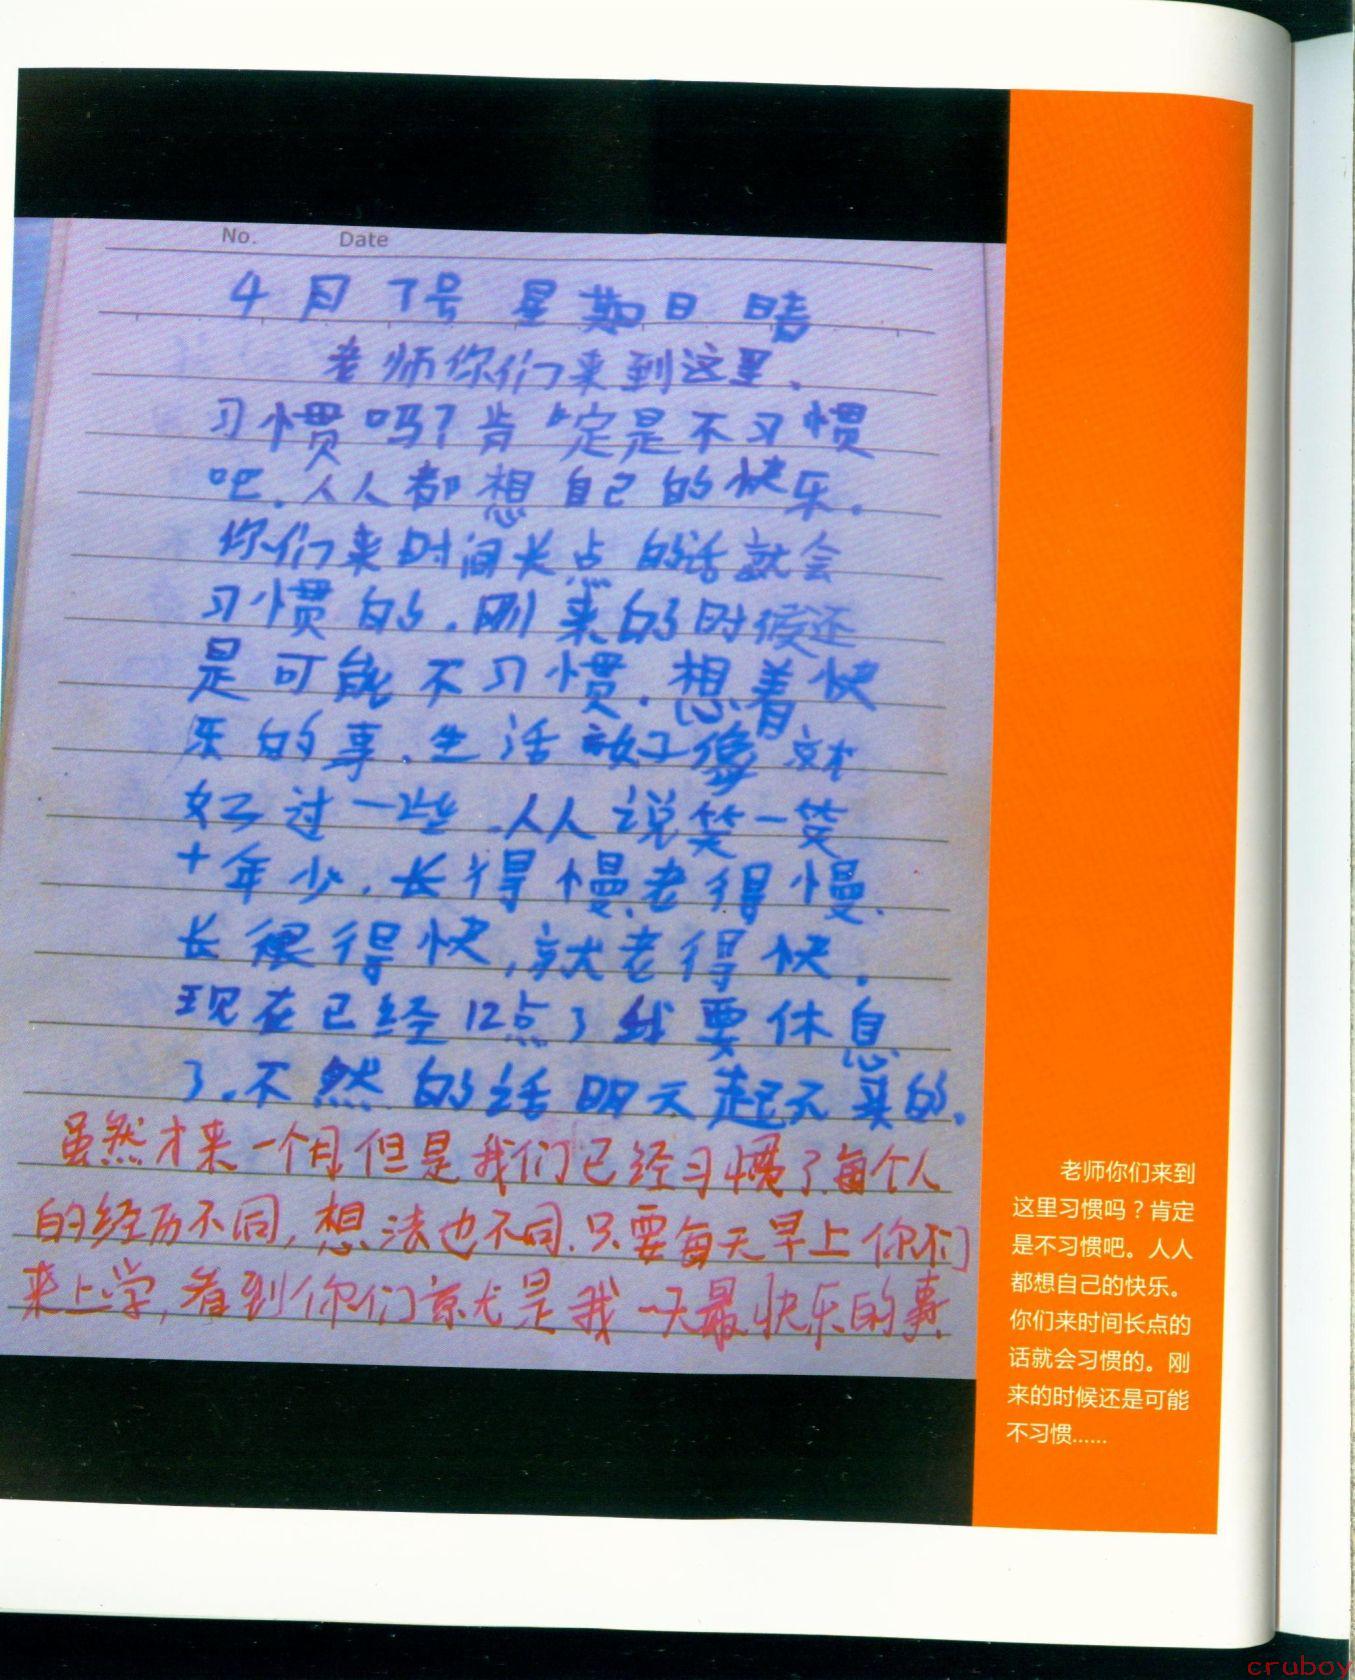 No. Date
4月7号 星期日 晴
老师你们来到这里.
习惯吗?肯定是不习惯
吧.人人都想自己的快乐.
你们来时间长点的话就会
习惯的.刚来的时候还
是可能不习惯.想着快
乐的事.生活好像就
好过一些.人人说笑一笑
十年少.长得慢老得慢.
长得快,就老得快.
现在已经12点了我要休息
了.不然的话明天起不来的.
虽然才来一个月但是我们已经习惯了.每个人
的经历不同,想法也不同.只要每天早上你们
来上学,看到你们就是我一天最快乐的事.
老师你们来到
这里习惯吗?肯定
是不习惯吧。人人
都想自己的快乐。
你们来时间长点的
话就会习惯的。刚
来的时候还是可能
不习惯……
cruboy